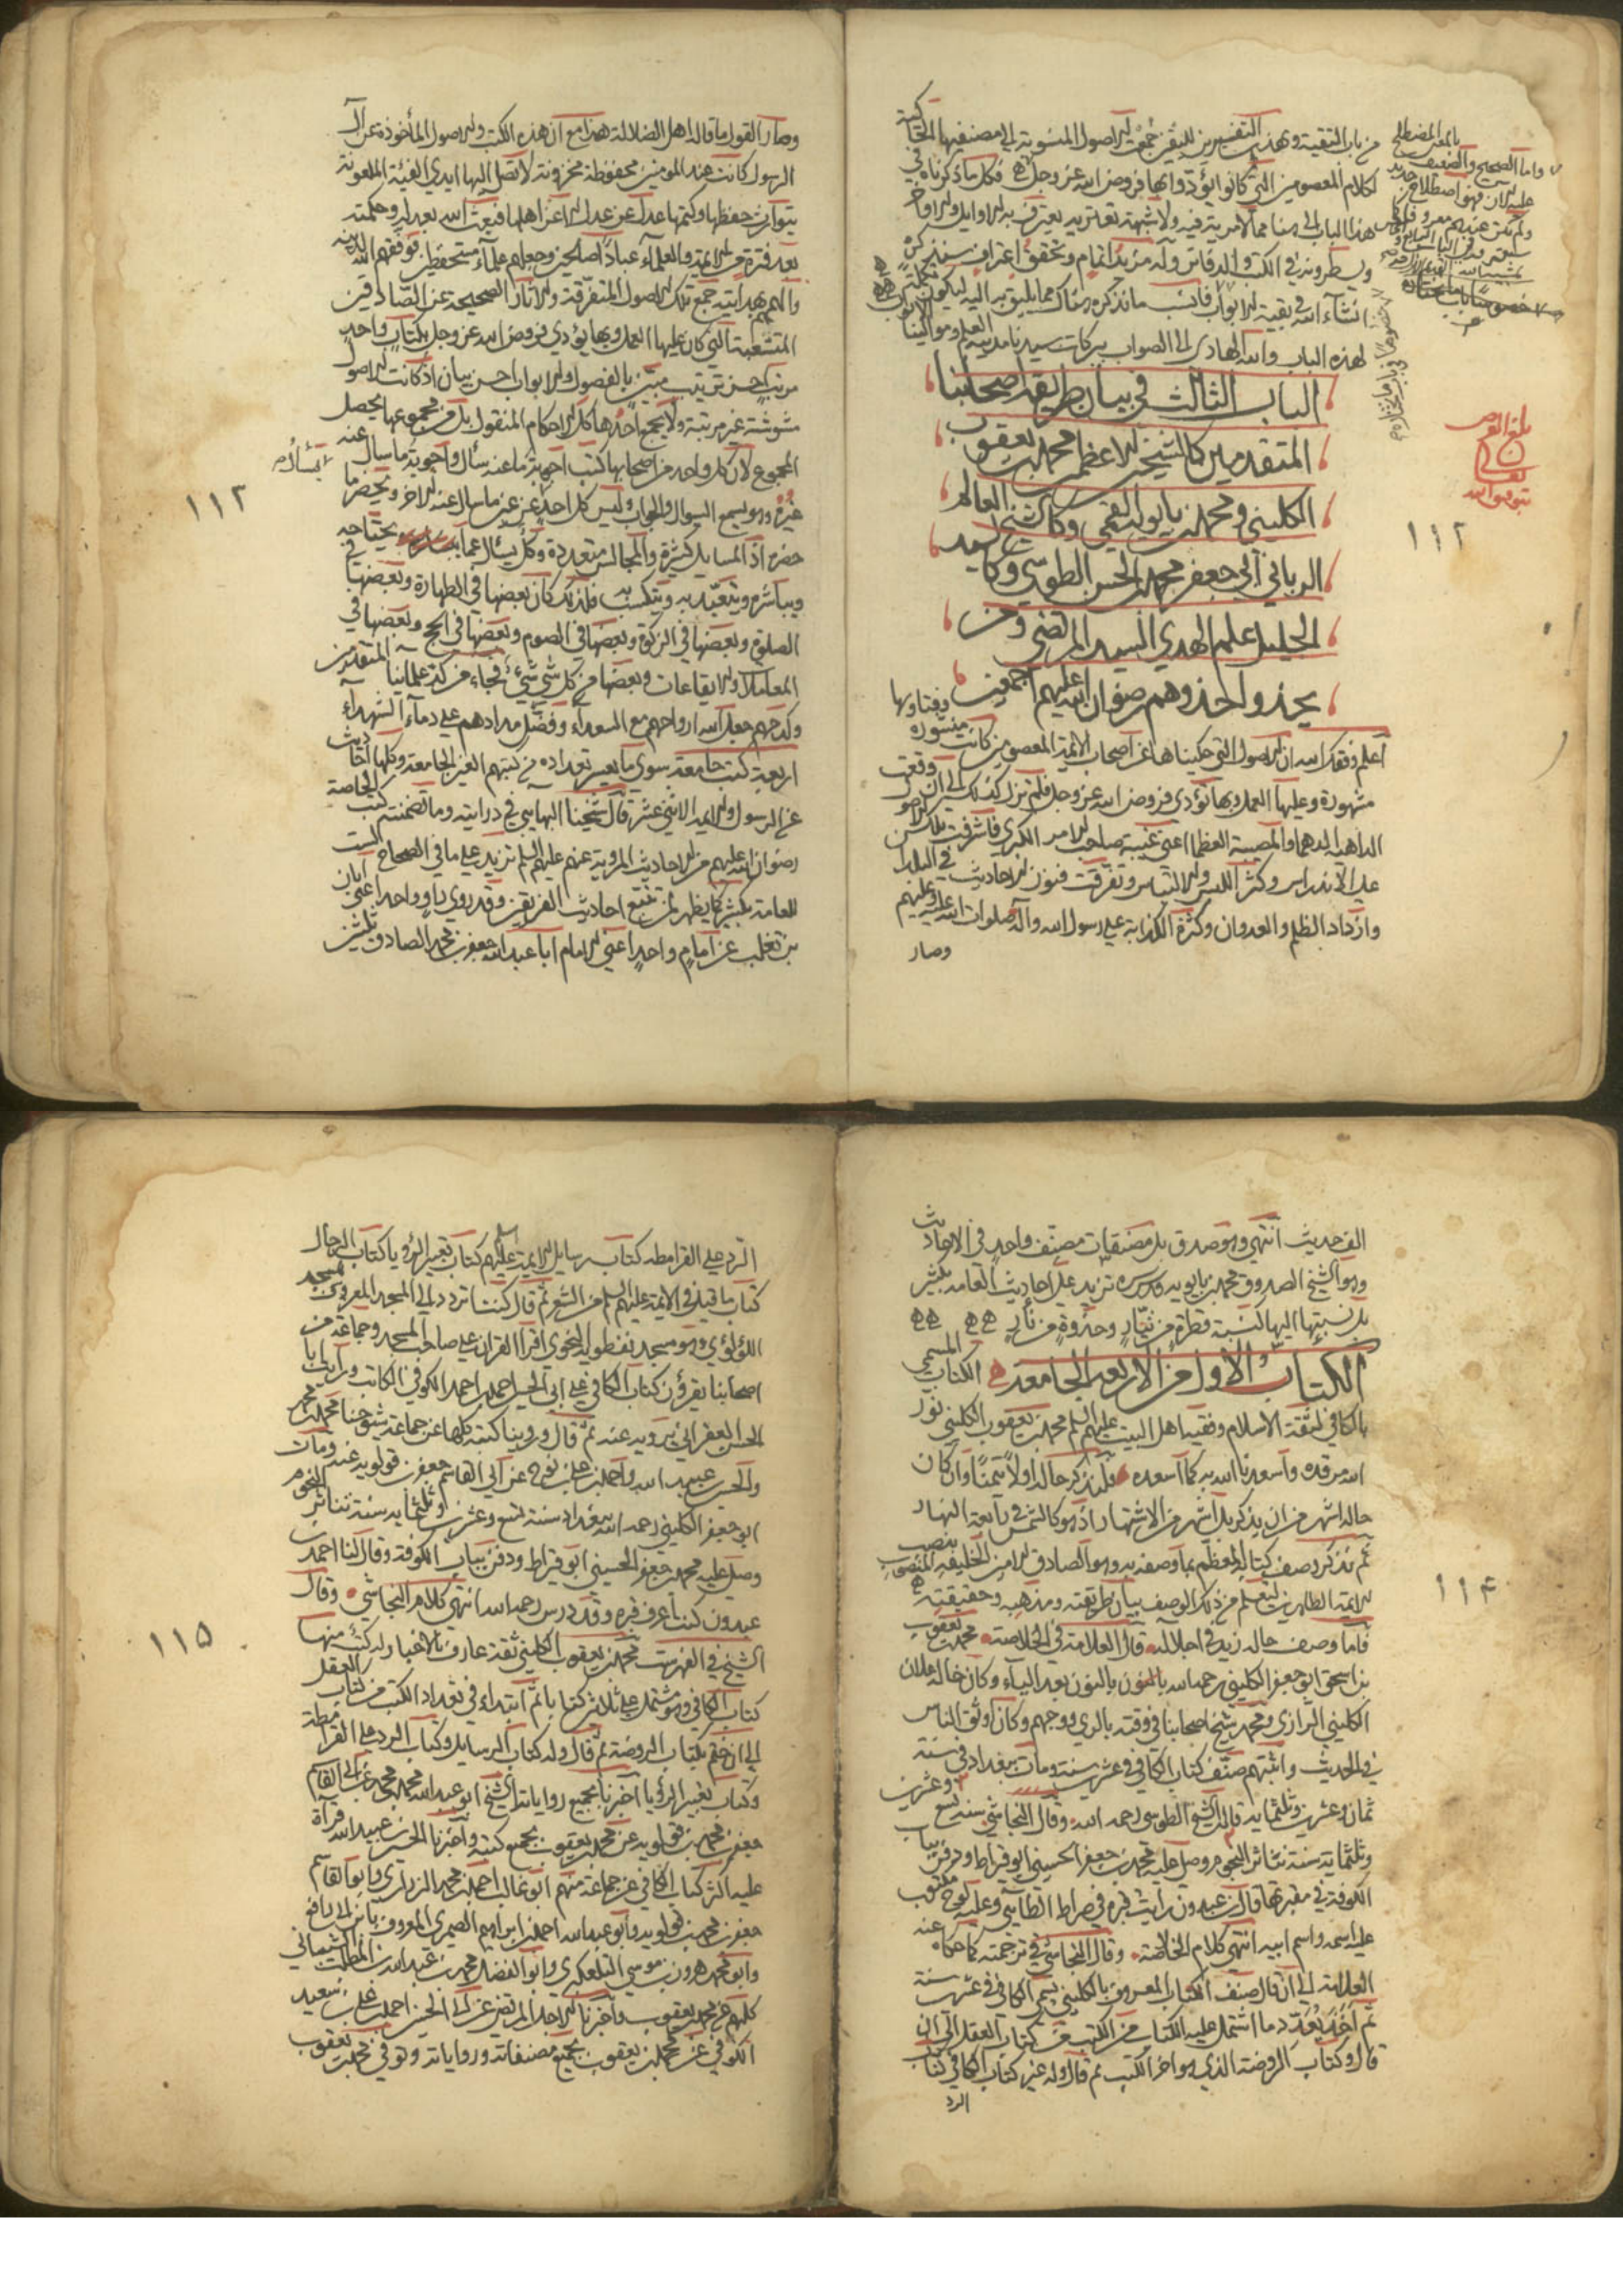 من باب التقية وبهذين التفسيرين للتقيه جمعت الاصول المنسوبة الى مصنفيها الحاكية
لكلام المعصومين التي كانوا يؤدوا بها فروض الله عز وجل فكل ما ذكرناه في
هذا الباب الى هنا مما لا مرية فيه ولا شبهة تعتريه يعترف به الاوايل والاواخر
ويسطرونه في الكتب والدفاتر وله مزيد اتمام وتحقق اعتراف سنذكره
انشاء الله في بقية الابواب فان ما نذكره هناك مما يليق به اليه ليكون تكملة
لهذه الباب والله الهادي الى الصواب ببركات سيدنا مدينة العلم وموالينا الابواب
الباب الثالث في بيان طريقة اصحابنا
المتقدمين كالشيخ الاعظم محمد بن يعقوب
الكليني ومحمد بن بابويه القمي وكالشيخ العالم
الرباني ابي جعفر محمد بن الحسن الطوسي وكالسيد
الجليل علم الهدي السيد المرتضى ومن
يحذوا حذوهم رضوان الله عليهم اجمعين
اعلم وفقك الله ان الاصول التي حكيناها عن اصحاب الائمة المعصومين كانت منشورة وفتاويها
مشهورة وعليها العمل وبها تؤدى فروض الله عز وجل فلم تزل كذلك الى ان وقعت
الداهية الدهما والمصيبة العظما اعني غيبة صاحب الامر الكبرى فاشرفت تلك الاصول
على الاندراس وكثر اللبس والالتباس وتفرقت فنون الاحاديث في البلدان
وازداد الظلم والعدوان وكثرة الكذابة على رسول الله وآله صلوات الله عليه وعليهم
وصار
واما الصحيح والضعيف بالمعنى المصطلح
عليه الان فهو اصطلاح جديد
ولم يكن عندهم معروفا كما
بلغ العرض
بتوفيق الله تعالى
١١٢
وصار القول ما قاله اهل الضلالة هذا مع ان هذه الكتب والاصول المأخوذة عن آل
الرسول كانت عند المومنين محفوظة مخزونة لا تصل اليها ايدي الفئة الملعونة
يتوارث حفظها وكتمها عدلا عن عدل الا عن اهلها فبعث الله بعدله وحكمته
بعد فترة من الائمة والعلماء عبادا صالحين وجعلهم علماء مستحفظين فوفقهم الله لدينه
والهمهم بهدايته جمع تلك الاصول المتفرقة والاثار الصحيحة عن الصادقين
المتشعبة التي كان عليها العمل وبها يؤدي فروض الله عز وجل بكتاب واحد
مرتب احسن ترتيب مبين بالفصول والابواب احسن بيان اذ كانت الاصول
مشوشة غير مرتبة ولا يجمع احدها كل الاحكام المنقول بل من مجموعها يحصل
المجموع لان كل واحد من اصحابها كتب اجوبة ما عنه سأل واجوبة ما سال عنه
غيره وهو يسمع السوال والجواب وليس كل احد غير غير ما سال عنه الاخر ويحضر ما
حضره اذ المسايل كثيرة والمجالس متعددة وكل يسال عما يحتاجه
ويباشره ويتعبد به ويتكسب به فلذلك كان بعضها في الطهارة وبعضها في
الصلوة وبعضها في الزكوة وبعضها في الصوم وبعضها في الحج وبعضها في
المعاملات والايقاعات وبعضها من كل شي شيء فجاء من كد علمائنا المتقدمين
وكدحهم جعل الله ارواحهم مع السعداء وفضل مدادهم على دماء الشهداء
اربعة كتب جامعة سوى ما يعسر تعداده من كتبهم الغير الجامعة وكلها احاديث
عن الرسول والائمة الاثني عشر قال شيخنا البهايي في درايته وما تضمنته كتب الخاصة
رضوان الله عليهم من الاحاديث المروية عنهم عليهم السلام تزيد على ما في الصحاح الست
للعامة بكثير كما يظهر لمن تتبع احاديث الفريقين وقد روى راو واحد اعني ابان
بن تغلب عن امام واحد اعني الامام ابا عبد الله جعفر بن محمد الصادق ثلثين
١١٢
الف حديث انتهى وهو صدق بل مصنفات مصنف واحد في الاحاديث
وهو الشيخ الصدوق محمد بن بابويه قدس سره تزيد على احاديث العامة بكثير
بل نسبتها اليها كنسبة قطرة من تيار وجذوة من نار
الكتاب الاول من الاربعة الجامعة الكتاب المسمى
بالكافي لثقة الاسلام وفقيه اهل البيت عليهم السلام محمد بن يعقوب الكليني نور
الله مرقده واسعدنا الله به كما اسعده فلنذكر حاله اولا تيمنا وان كان
حاله اشهر من ان يذكر بل اشهر من الاشتهار اذ هو كالشمس في رابعة النهار
ثم نذكر وصف كتابه المعظم بما وصفه به وهو الصادق الامين الخليفة المنصوب بنصب
الائمة الطاهرين لتعلم من ذلك الوصف بيان طريقته ومذهبه وحقيقته
فاما وصف حاله زيد في اجلاله قال العلامة في الخلاصة محمد بن يعقوب
بن اسحق ابو جعفر الكليني رحمه الله بالنون بعد الياء وكان خاله علان
الكليني الرازي ومحمد شيخ اصحابنا في وقته بالري ووجههم وكان اوثق الناس
في الحديث واثبتهم صنف كتاب الكافي في عشرين سنة ومات ببغداد في سنة
ثمان وعشرين وثلثماية قاله الشيخ الطوسي رحمه الله وقال النجاشي سنة تسع وعشرين
وثلثماية سنة تناثر النجوم وصلى عليه محمد بن جعفر الحسيني ابو قيراط ودفن بباب
الكوفة في مقبرتها قال ابن عبدون رايت قبره في صراط الطائي وعليه لوح مكتوب
عليه اسمه واسم ابيه انتهى كلام الخلاصة وقال النجاشي في ترجمته كما حكاه عنه
العلامة الى ان قال صنف الكتاب المعروف بالكليني يسمى الكافي في عشرين سنة
ثم اخذ يعدد ما اشتمل عليه الكتاب من الكتب من كتاب العقل الى ان
قال وكتاب الروضة الذي هو اخر الكتب ثم قال وله غير كتاب الكافي كتاب
الرد
١١٤
الرد على القرامطة كتاب رسايل الايمة عليهم السلام كتاب تعبير الرؤيا كتاب الرجال
كتاب ما قيل في الائمة عليهم السلام من الشعر ثم قال كنت اتردد الى المسجد المعروف بمسجد
اللؤلؤي وهو مسجد نفطويه النحوي اقرأ القران على صاحب المسجد وجماعة من
اصحابنا يقرؤن كتاب الكافي على ابي الحسين احمد بن احمد الكوفي الكاتب ورأيت ابا
الحسن العقرائي يرويه عنه ثم قال وروينا كتبه كلها عن جماعة شيوخنا محمد بن محمد
والحسين بن عبيد الله واحمد بن علي بن نوح عن ابي القاسم جعفر بن قولويه عنه ومات
ابو جعفر الكليني رحمه الله ببغداد سنة تسع وعشرين وثلثماية سنة تناثر النجوم
وصلى عليه محمد بن جعفر الحسيني ابو قيراط ودفن بباب الكوفة وقال لنا احمد بن
عبدون كنت اعرف قبره وقد درس رحمه الله انتهى كلام النجاشي وقال
الشيخ في الفهرست محمد بن يعقوب الكليني ثقة عارف بالاخبار له كتب منها
كتاب الكافي وهو مشتمل على ثلاثين كتابا ثم ابتداء في تعداد الكتب من كتاب العقل
الى ان ختم بكتاب الروضة ثم قال وله كتاب الرسايل وكتاب الرد على القرامطة
وكتاب تعبير الرؤيا اخبرنا بجميع رواياته الشيخ ابو عبد الله محمد بن محمد عن ابي القاسم
جعفر بن محمد بن قولويه عن محمد بن يعقوب بجميع كتبه واخبرنا الحسين بن عبيد الله قرأة
عليه اكثر كتاب الكافي عن جماعة منهم ابو غالب احمد بن محمد الزراري وابو القاسم
جعفر بن محمد بن قولويه وابو عبد الله احمد بن ابراهيم الصيمري المعروف بابن ابي رافع
وابو محمد هرون بن موسى التلعكبري وابو الفضل محمد بن عبد الله بن المطلب الشيباني
كلهم عن محمد بن يعقوب واخبرنا الاجل المرتضى عن ابي الحسين احمد بن علي بن سعيد
الكوفي عن محمد بن يعقوب بجميع مصنفاته ورواياته وتوفي محمد بن يعقوب
١١٥